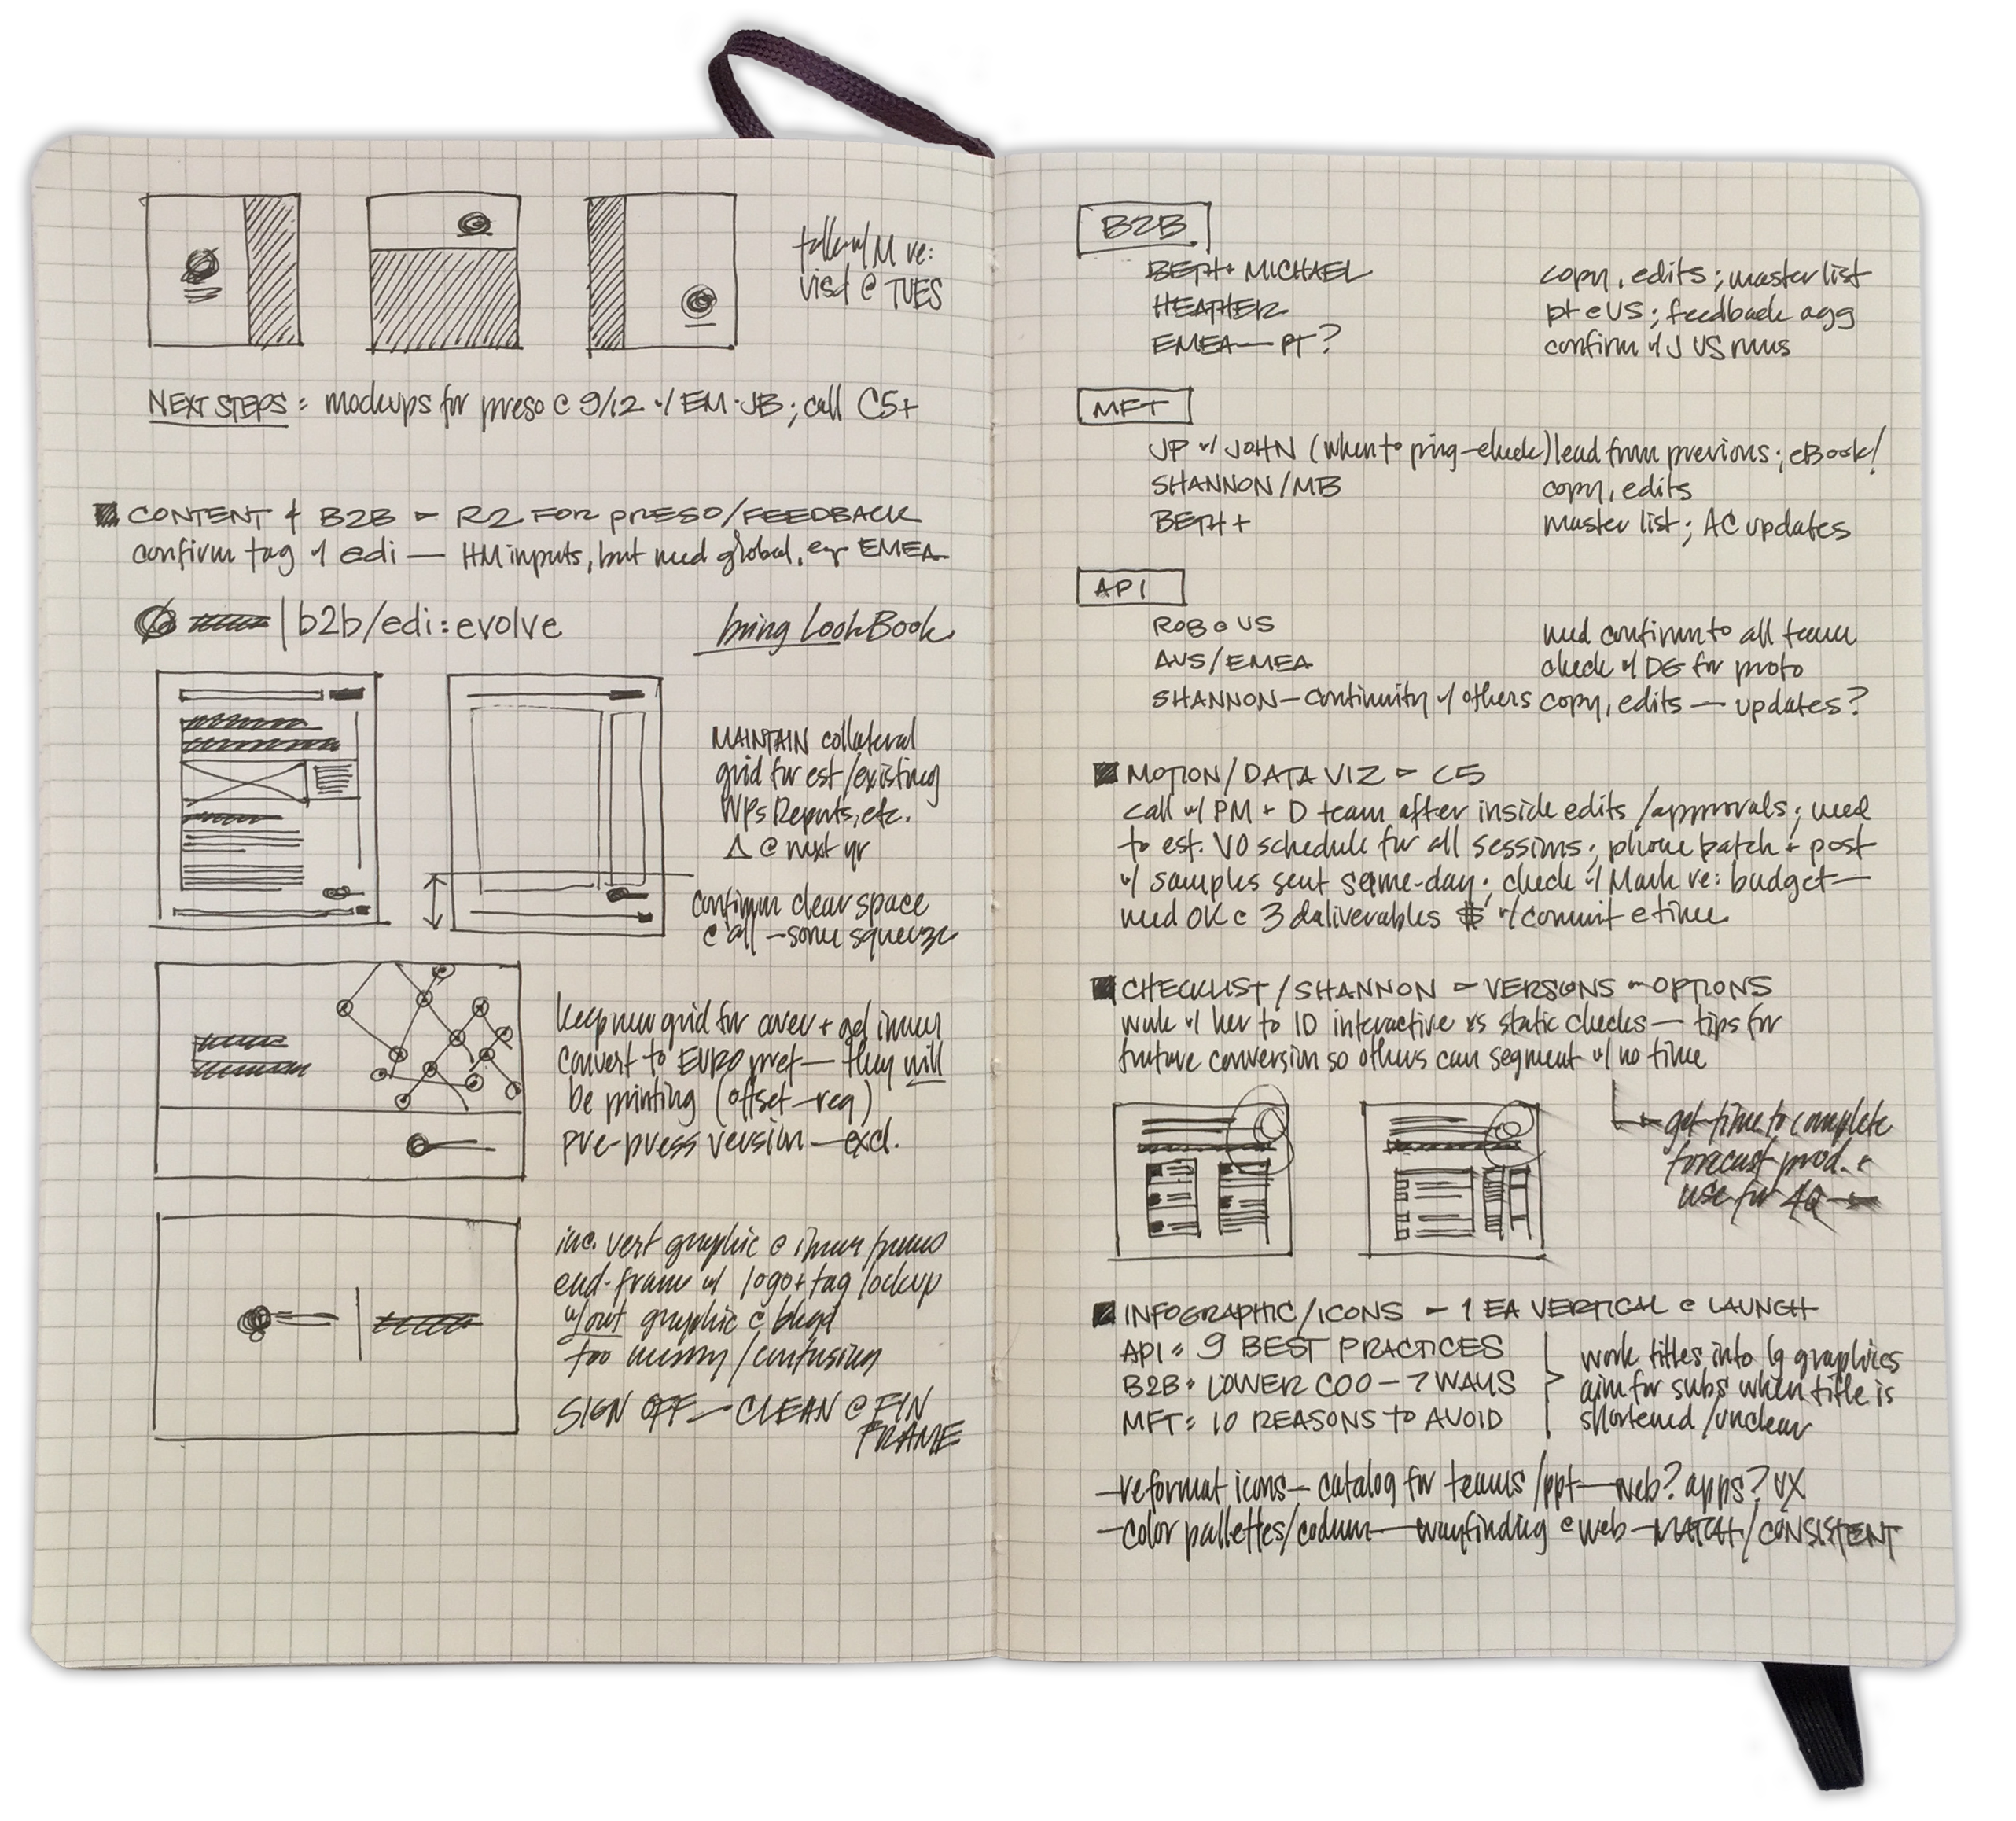 talk w/ M re:
visd @ TUES
NEXT STEPS: mockups for preso @ 9/12 w/ EM·JB; call C5+
CONTENT + B2B – R2 FOR PRESO/FEEDBACK
confirm tag w/ edi — HM inputs, but need global, eg EMEA
| b2b/edi:evolve
bring LookBook
MAINTAIN collateral
grid for est/existing
WPs Reports, etc.
Δ @ next yr
confirm clear space
@ all – some squeeze
keep new grid for cover + get inner
convert to EURO pref — they will
be printing (offset–req)
pre-press version — excl.
inc. vert graphic @ inner frames
end-frame w/ logo + tag lockup
w/out graphic @ bkgd
too messy/confusing
SIGN OFF — CLEAN @ FIN
FRAME
B2B
BETH + MICHAEL copy, edits; master list
HEATHER pt @ US; feedback agg
EMEA — PT? confirm w/ J US runs
MFT
JP w/ JOHN (when to ping–check) lead from previous; eBook!
SHANNON/MB copy, edits
BETH + master list; AC updates
API
ROB @ US need confirm to all team
AUS/EMEA check w/ DG for proto
SHANNON — continuity w/ others copy, edits — updates?
MOTION/DATA VIZ – C5
call w/ PM + D team after inside edits/approvals; need
to est. VO schedule for all sessions; phone patch + post
w/ samples sent same-day; check w/ Mark re: budget —
need OK @ 3 deliverables $ w/ commit @ time
CHECKLIST/SHANNON – VERSIONS – OPTIONS
work w/ her to ID interactive vs static checks — tips for
future conversion so others can segment w/ no time
get time to complete
forecast prod. +
use for 4Q
INFOGRAPHIC/ICONS – 1 EA VERTICAL @ LAUNCH
API: 9 BEST PRACTICES
B2B: LOWER COO – 7 WAYS
MFT: 10 REASONS TO AVOID
work titles into lg graphics
aim for subs when title is
shortened/unclear
– reformat icons – catalog for teams/ppt — web? apps? UX
– color pallettes/codum — wayfinding @ web – MATCH/CONSISTENT